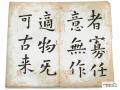 者寡任
意無作
適物旡
可古来